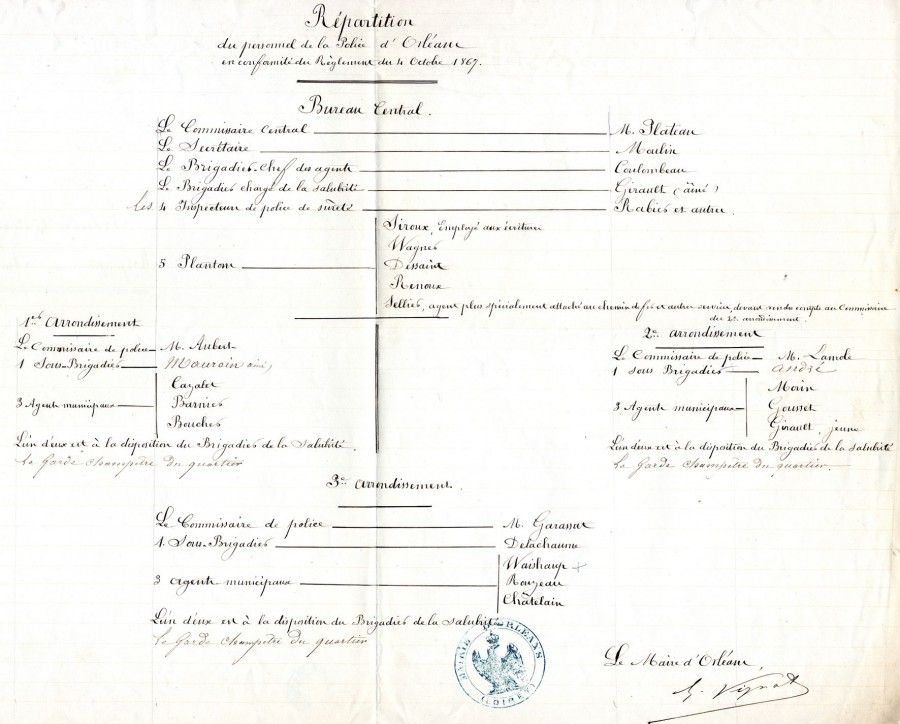 Répartition
du personnel de la Police d'Orléans
en conformité du Règlement du 4 Octobre 1867.
Bureau Central.
Le Commissaire Central M. Plateau
Le Secrétaire Moulin
Le Brigadier-Chef des agents Coulombeau
Le Brigadier chargé de la salubrité Girault (aîné)
les 4 Inspecteurs de police de sûreté Rabier et autres.
5 Plantons
Siroux, Employé aux écritures
Wagner
Dessaint
Renoux
Sellier, agent plus spécialement attaché au chemin de fer et autres services, devant rendre compte au Commissaire
du 2e arrondissement.
1er Arrondissement
Le Commissaire de police M. Aubert
1 Sous-Brigadier Mauroin aîné,
3 Agents municipaux
Cazalet
Barnier
Boucher
L'un d'eux est à la disposition du Brigadier de la Salubrité.
Le Garde champêtre du quartier
2e arrondissement
Le Commissaire de police M. Lamole
1 Sous Brigadier André
3 Agents municipaux
Morin
Gousset
Girault, jeune
L'un d'eux est à la disposition du Brigadier de la Salubrité
Le Garde champêtre du quartier.
3e Arrondissement.
Le Commissaire de police M. Garassut
1. Sous-Brigadier Delachaume
3 agents municipaux
Waishaup +
Rouzeau
Châtelain
L'un d'eux est à la disposition du Brigadier de la Salubrité
Le Garde champêtre du quartier
MAIRIE D'ORLÉANS
(LOIRET)
Le Maire d'Orléans,
E. Vignat